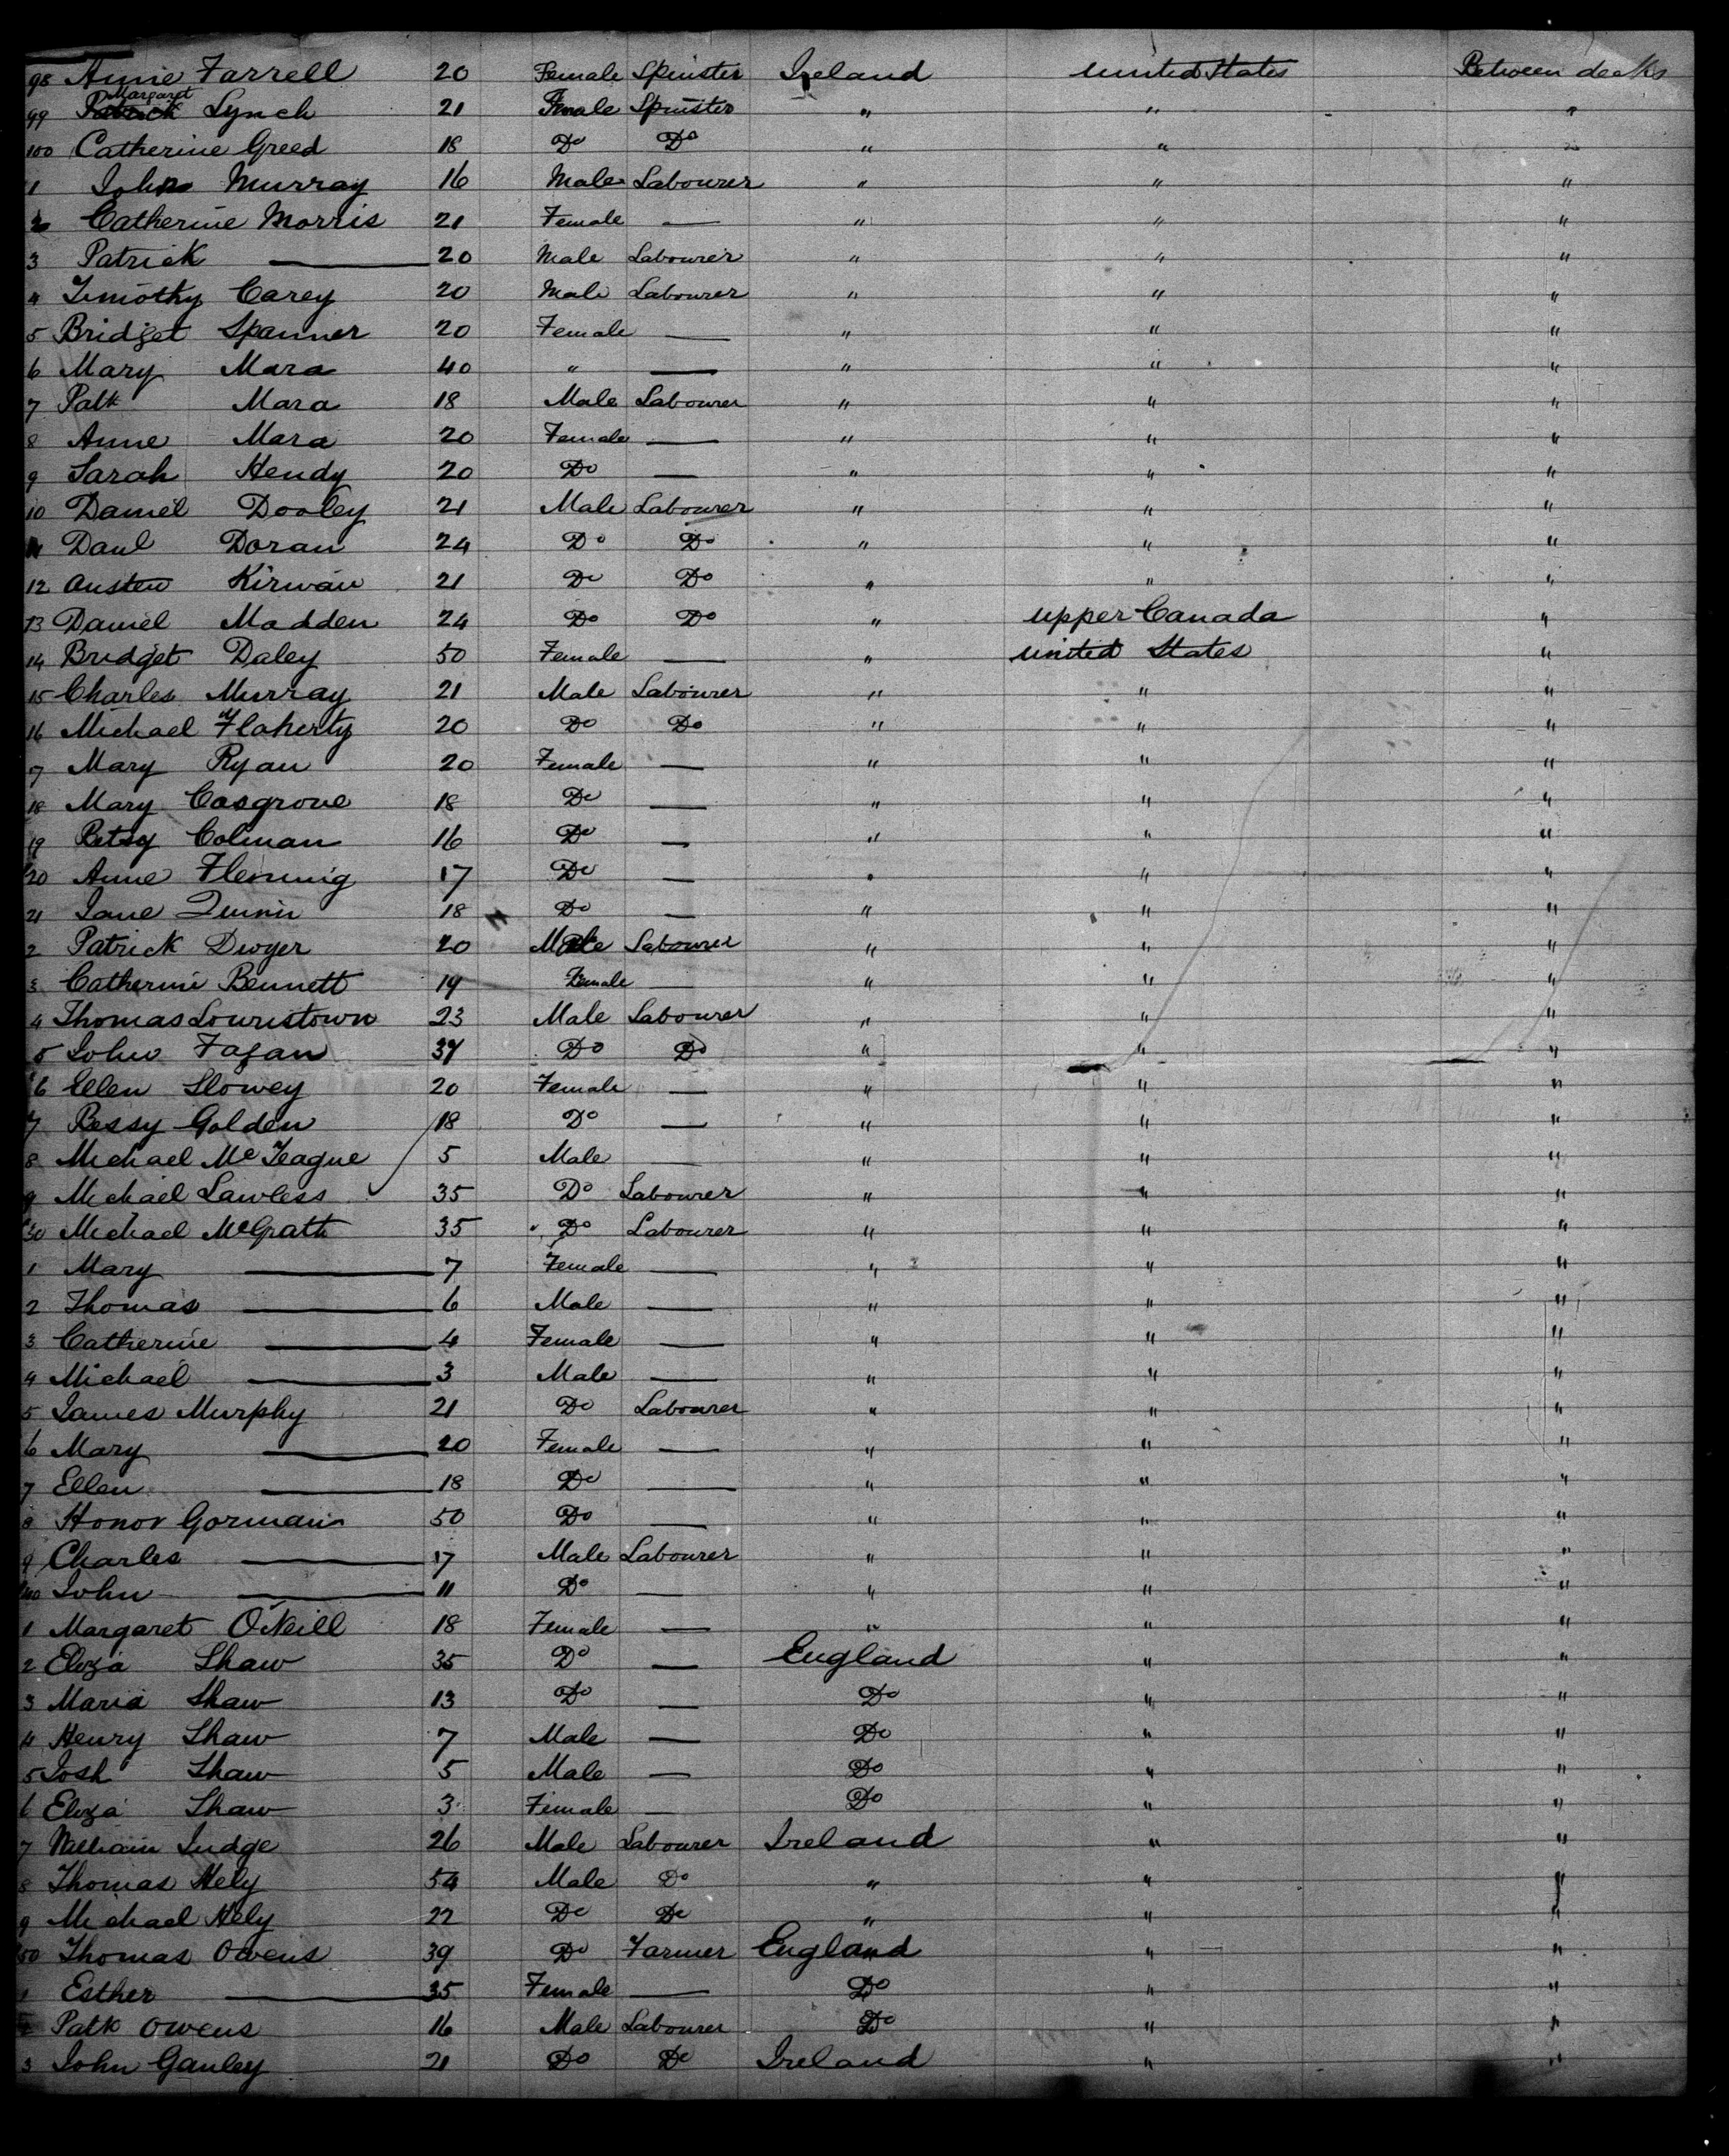 98 Annie Farrell 20 Female Spinster Ireland United States Between decks
99 Patrick Margaret Lynch 21 Female Spinster " " "
100 Catherine Greed 18 Do Do " " "
1 John Murray 16 Male Labourer " " "
2 Catherine Morris 21 Female — " " "
3 Patrick — 20 Male Labourer " " "
4 Timothy Carey 20 Male Labourer " " "
5 Bridget Spanner 20 Female — " " "
6 Mary Mara 40 " — " " "
7 Patk Mara 18 Male Labourer " " "
8 Anne Mara 20 Female — " " "
9 Sarah Hendy 20 Do — " " "
10 Daniel Dooley 21 Male Labourer " " "
11 Danl Doran 24 Do Do " " "
12 Austen Kirwan 21 Do Do " " "
13 Daniel Madden 24 Do Do " upper Canada "
14 Bridget Daley 50 Female — " United States "
15 Charles Murray 21 Male Labourer " " "
16 Michael Flaherty 20 Do Do " " "
7 Mary Ryan 20 Female — " " "
18 Mary Cosgrove 18 Do — " " "
19 Betsy Colman 16 Do — " " "
20 Anne Fleming 17 Do — " " "
21 Jane Quinn 18 Do — " " "
2 Patrick Dwyer 20 Male Labourer " " "
3 Catherine Bennett 19 Female — " " "
4 Thomas Lounstown 23 Male Labourer " " "
5 John Fagan 37 Do Do " " "
6 Ellen Slowey 20 Female — " " "
7 Bessy Golden 18 Do — " " "
8 Michael McTeague 5 Male — " " "
9 Michael Lawless 35 Do Labourer " " "
30 Michael McGrath 35 Do Labourer " " "
1 Mary — 7 Female — " " "
2 Thomas — 6 Male — " " "
3 Catherine — 4 Female — " " "
4 Michael — 3 Male — " " "
5 James Murphy 21 Do Labourer " " "
6 Mary — 20 Female — " " "
7 Ellen — 18 Do — " " "
8 Honor Gorman 50 Do — " " "
9 Charles — 17 Male Labourer " " "
40 John — 11 Do — " " "
1 Margaret O'Neill 18 Female — " " "
2 Eliza Shaw 35 Do — England " "
3 Maria Shaw 13 Do — Do " "
4 Henry Shaw 7 Male — Do " "
5 Josh Shaw 5 Male — Do " "
6 Eliza Shaw 3 Female — Do " "
7 William Judge 26 Male Labourer Ireland " "
8 Thomas Hely 54 Male Do " " "
9 Michael Hely 22 Do Do " " "
50 Thomas Owens 39 Do Farmer England " "
1 Esther — 35 Female — Do " "
2 Patk Owens 16 Male Labourer Do " "
3 John Ganley 21 Do Do Ireland " "